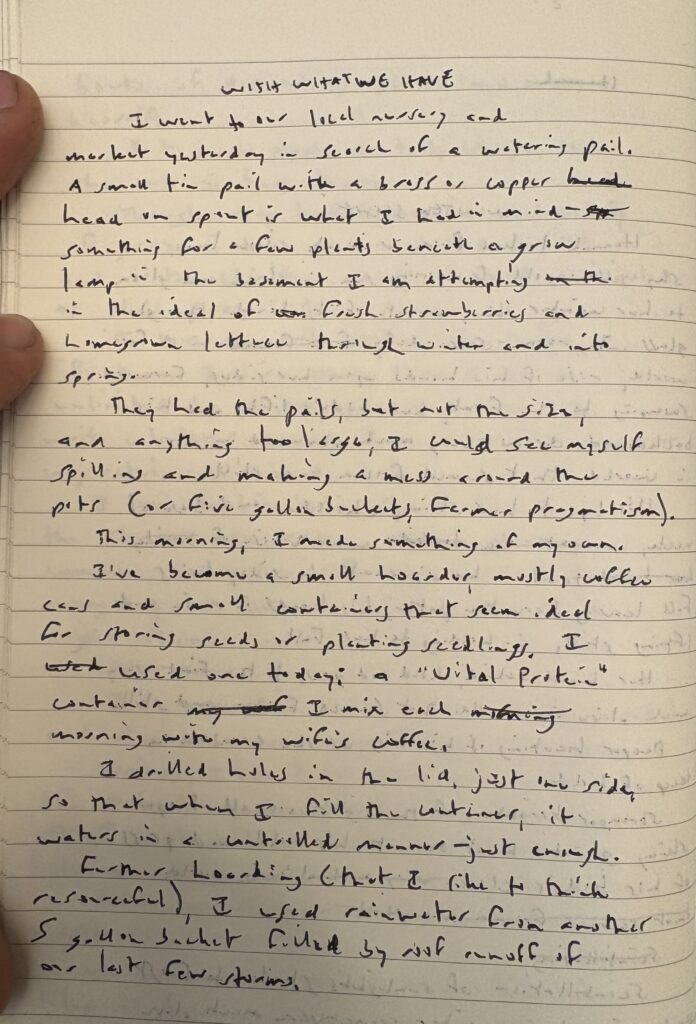 WITH WHAT WE HAVE
I went to our local nursery and
market yesterday in search of a watering pail.
A small tin pail with a brass or copper head
head on spout is what I had in mind-
something for a few plants beneath a grow
lamp in the basement I am attempting in the
in the ideal of fresh strawberries and
homegrown lettuce through winter and into
spring.
They had the pails, but not the size,
and anything too large, I could see myself
spilling and making a mess around the
pots (or five gallon buckets, farmer pragmatism).
This morning, I made something of my own.
I've become a small hoarder, mostly coffee
cans and small containers that seem ideal
for storing seeds or planting seedlings. I
used used one today; a "Vital Protein"
container my wife I mix each morning
morning with my wife's coffee.
I drilled holes in the lid, just one side,
so that when I fill the container, it
waters in a controlled manner-just enough.
Further hoarding (that I like to think
resourceful), I used rainwater from another
5 gallon bucket filled by roof runoff of
our last few storms.